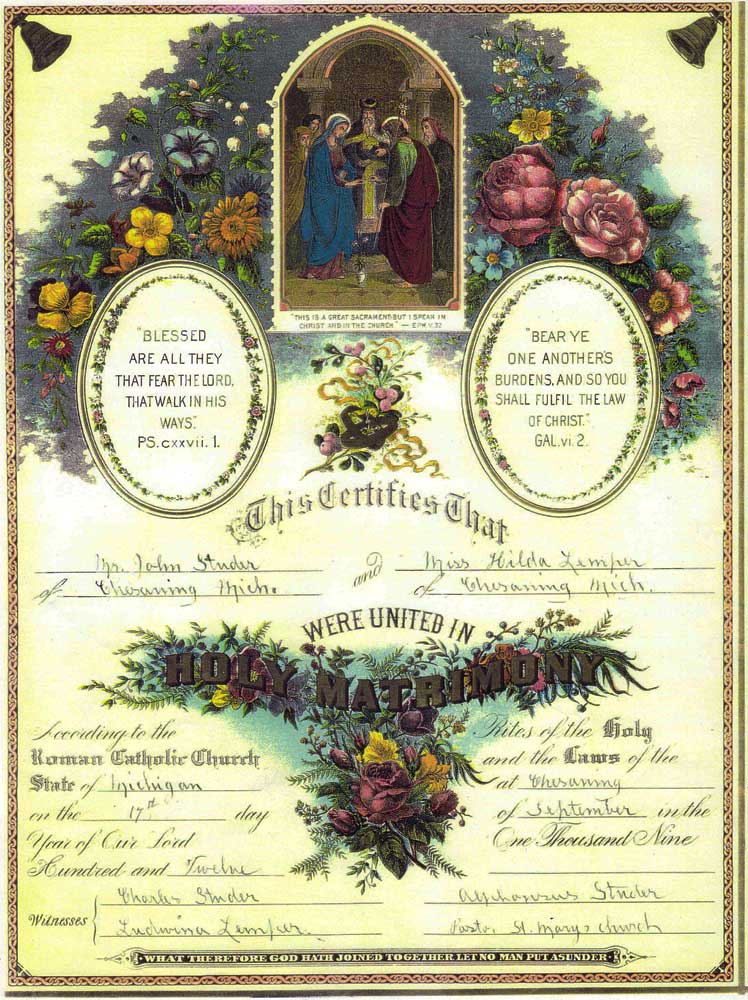 "THIS IS A GREAT SACRAMENT: BUT I SPEAK IN
CHRIST AND IN THE CHURCH." — EPH. V. 32
"BLESSED
ARE ALL THEY
THAT FEAR THE LORD,
THAT WALK IN HIS
WAYS."
PS. cxxvii. 1.
"BEAR YE
ONE ANOTHER'S
BURDENS, AND SO YOU
SHALL FULFIL THE LAW
OF CHRIST."
GAL. vi. 2.
This Certifies That
Mr. John Studer and Miss Hilda Zemper
of Chesaning Mich. of Chesaning Mich.
WERE UNITED IN
HOLY MATRIMONY
According to the Rites of the Holy
Roman Catholic Church and the Laws of the
State of Michigan at Chesaning
on the 17th day of September in the
Year of Our Lord One Thousand Nine
Hundred and Twelve
Witnesses
Charles Studer
Ludwina Zemper.
Alphonsus Studer
Pastor St. Marys church
WHAT THEREFORE GOD HATH JOINED TOGETHER LET NO MAN PUT ASUNDER